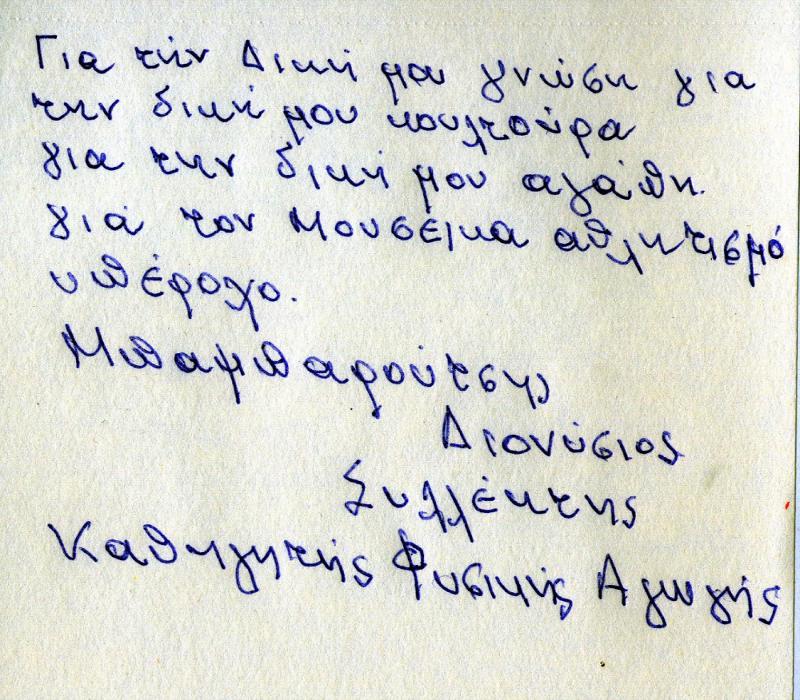 Για την Δική μου γνώση για
την δική μου κουλτούρα
για την δική μου αγάπη.
για τον Μουσείκα αθλητισμό
υπέροχο.
Μπαμπαρούτσης
Διονύσιος
Συλλέκτης
Καθηγητής Φυσικής Αγωγής